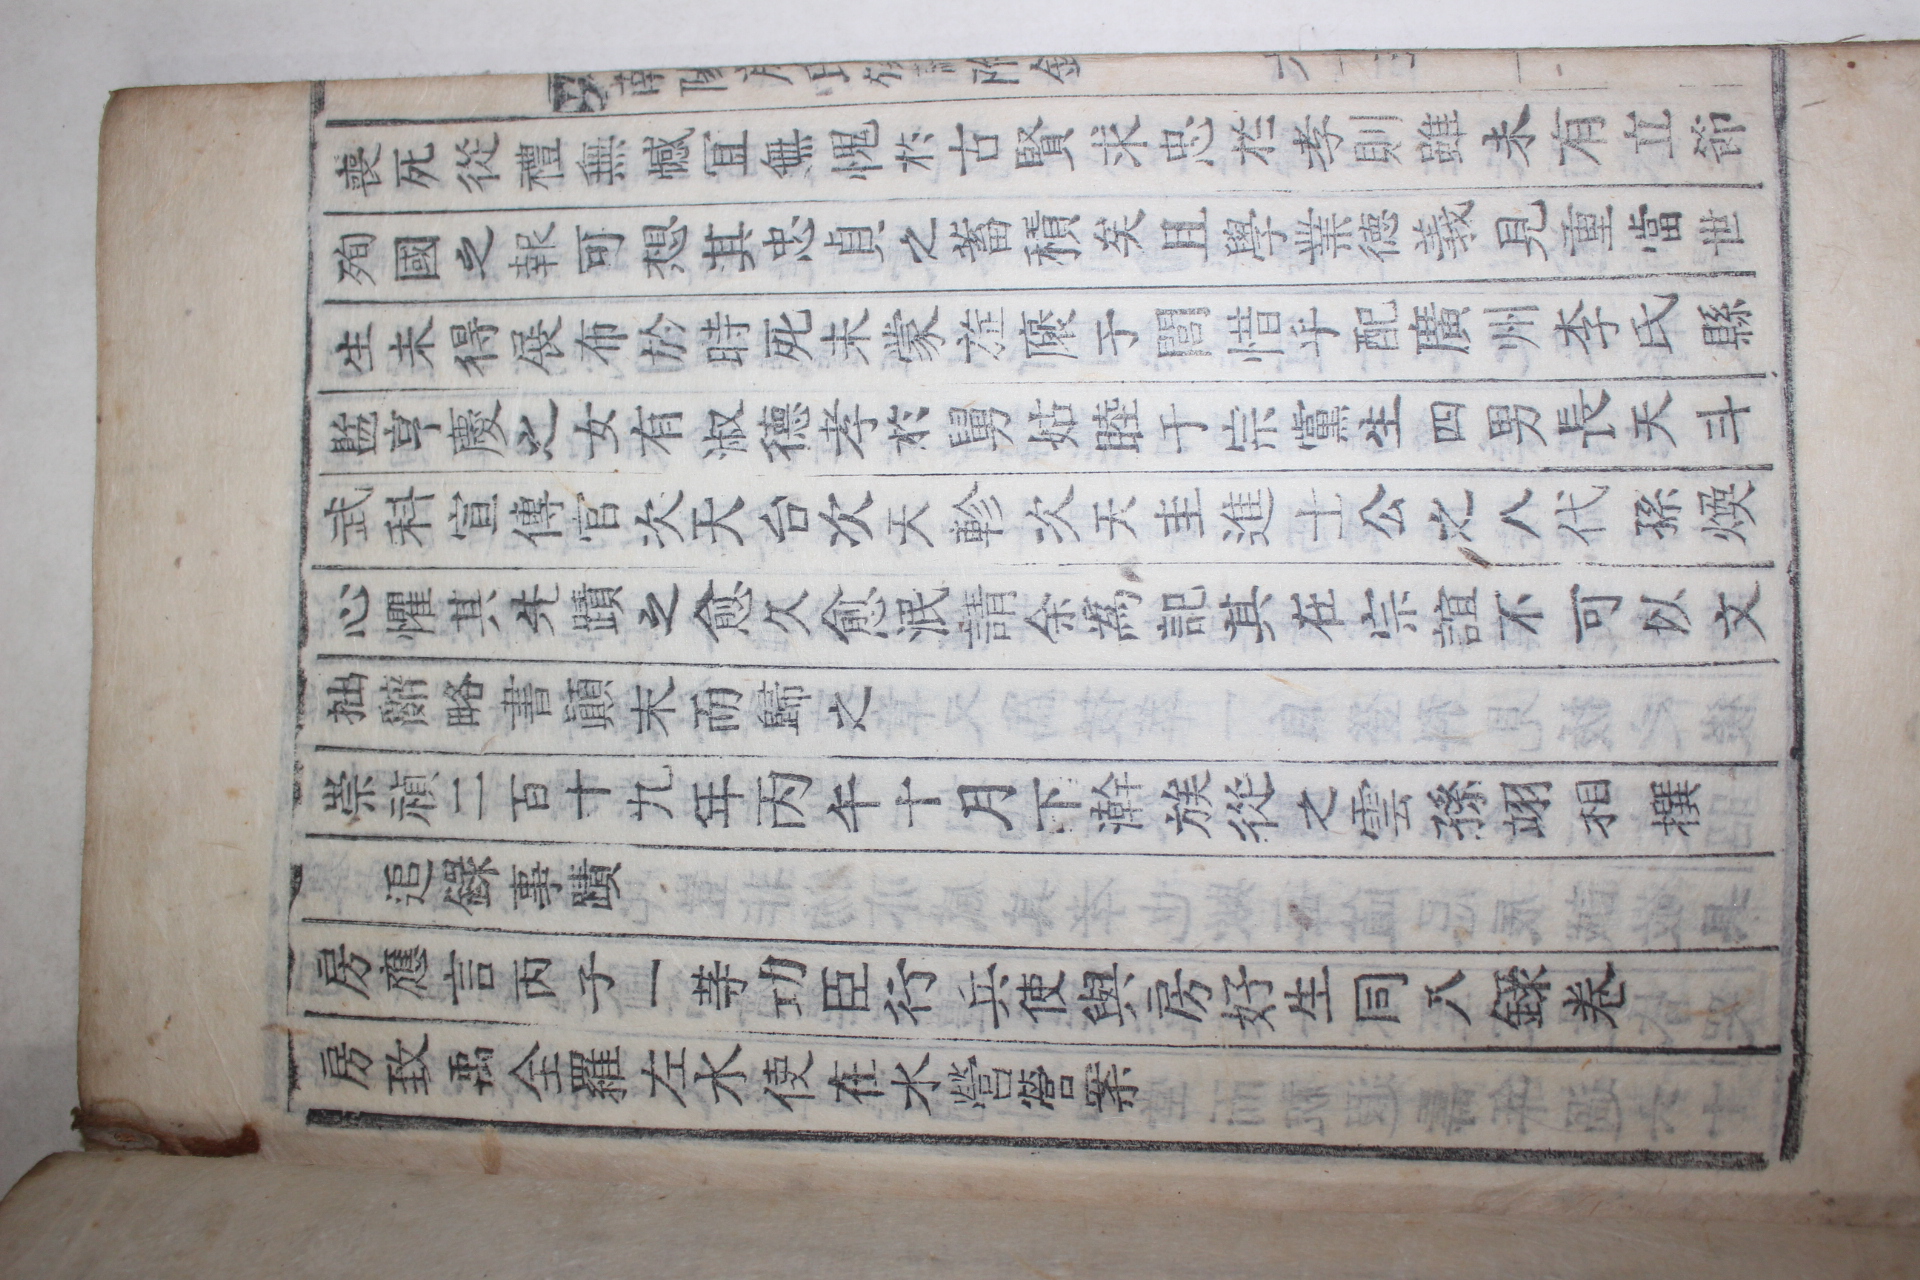 喪死從禮無憾宜無愧於古賢求忠於孝則雖未有立節
殉國之報可想其忠貞之蓄積矣且學業德義見重當世
生未得展布於時死未蒙旌褒于閭惜乎配廣州李氏縣
監亨慶之女有淑德孝於舅姑睦于宗黨生四男長天斗
武科宣傳官次天台次天軫次天圭進士公之八代孫煥
心懼其先蹟之愈久愈泯請余為記其在宗誼不可以文
拙辭略書顚末而歸之
崇禎二百十九年丙午十月下澣族從之雲孫翊相撰
追錄事蹟
房應言丙子一等功臣行兵使與房好生同入錄卷
房致禹全羅左水使在水營營案